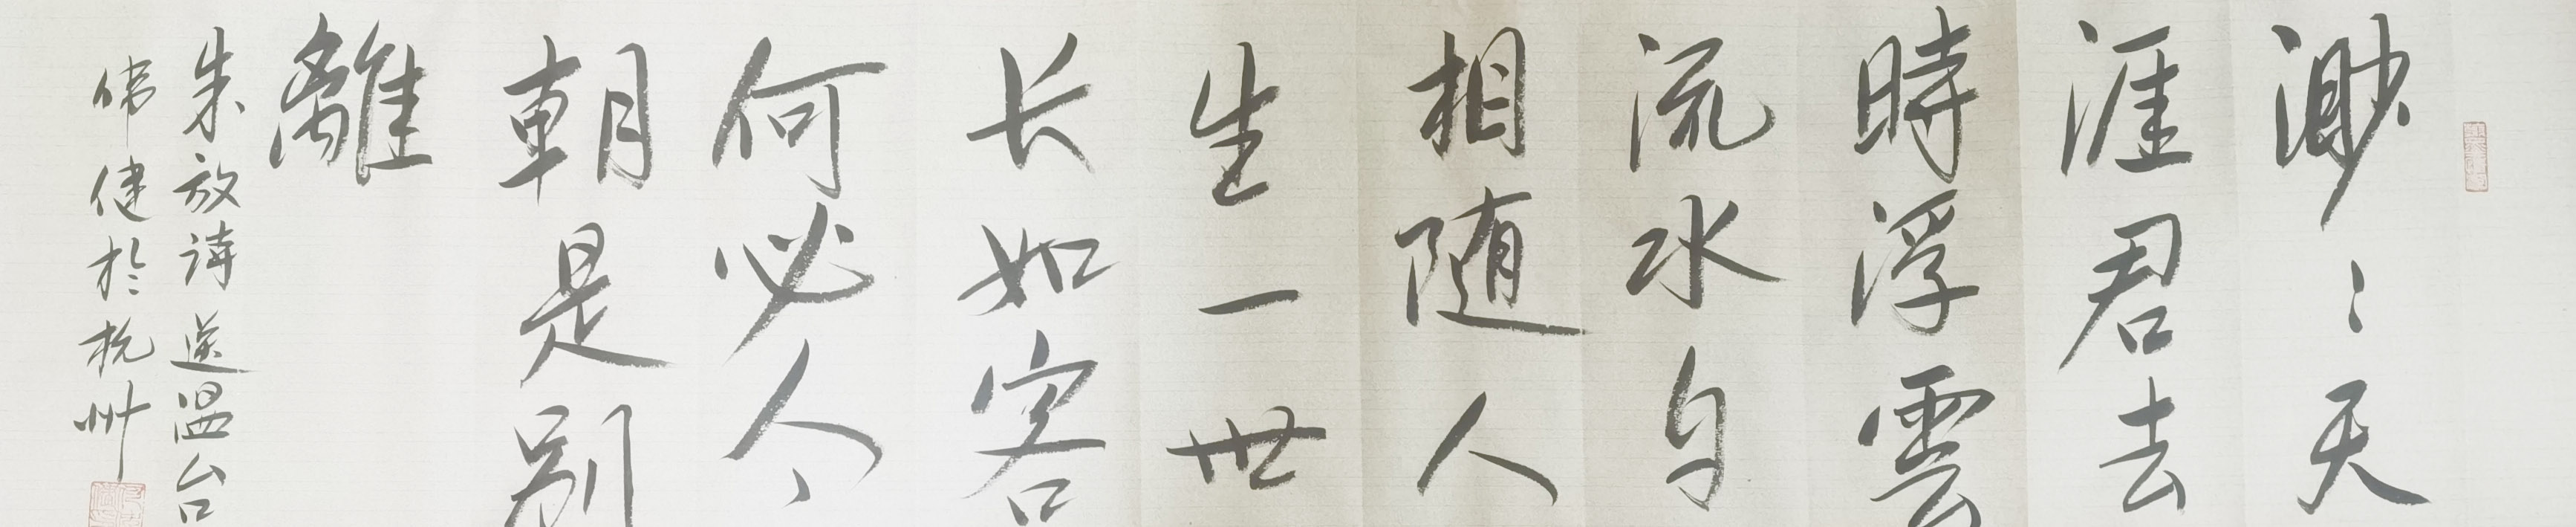 渺〻天
涯君去
時浮雲
流水自
相随人
生一世
长如客
何必人〻
朝是别
離
朱放诗 送温台
伟健於杭州